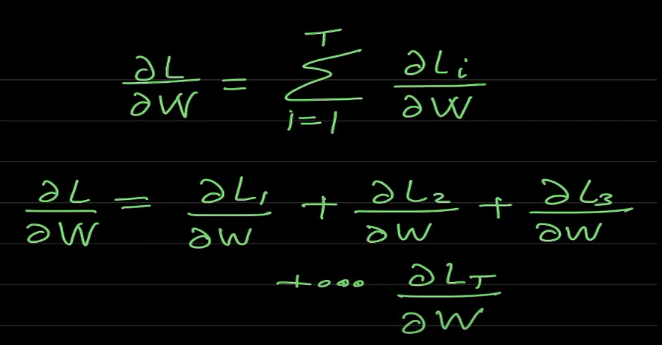 ∂L/∂W = Σ_{i=1}^{T} ∂L_i/∂W
∂L/∂W = ∂L_1/∂W + ∂L_2/∂W + ∂L_3/∂W
+... ∂L_T/∂W